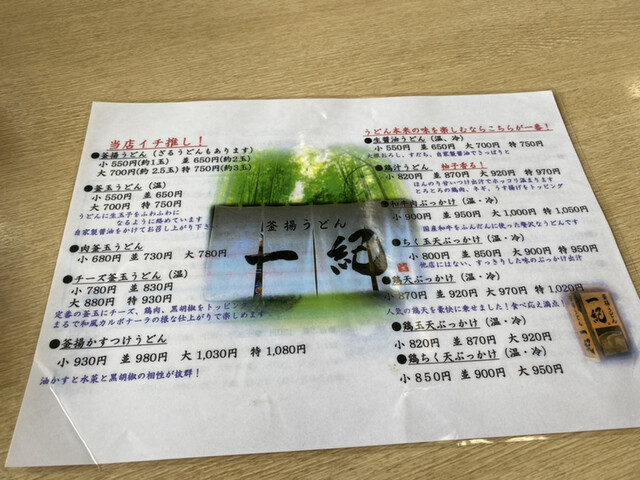 当店イチ推し！
●釜揚うどん（ざるうどんもあります）
小 550円(約1玉) 並 650円(約2玉)
大 700円(約2.5玉) 特 750円(約3玉)
●釜玉うどん（温）
小 550円 並 650円
大 700円 特 750円
うどんに生玉子をふわふわに
なるように絡めています
自家製醤油をかけてお召し上がり下さい
●肉釜玉うどん
小 680円 並 730円 大 780円
●チーズ釜玉うどん（温）
小 780円 並 830円
大 880円 特 930円
定番の釜玉にチーズ、鶏肉、黒胡椒をトッピング
まるで和風カルボナーラの様な仕上がりで楽しめます
●釜揚かすつけうどん
小 930円 並 980円 大 1,030円 特 1,080円
油かすと水菜と黒胡椒の相性が抜群！
釜揚うどん
一紀
うどん本来の味を楽しむならこちらが一番！
●生醤油うどん（温、冷）
小 550円 並 650円 大 700円 特 750円
大根おろし、すだち、自家製醤油でさっぱりと
●鶏汁うどん 柚子香る！
小 820円 並 870円 大 920円 特 970円
ほんのりせいつけ出汁でホッコリ温まります
とろとろの鶏肉、ネギ、うす揚げをトッピング
●和牛肉ぶっかけ（温・冷）
小 900円 並 950円 大 1,000円 特 1,050円
国産和牛をふんだんに使った贅沢なうどんです
●ちく玉天ぶっかけ（温・冷）
小 800円 並 850円 大 900円 特 950円
他店にはない、すっきりした味のぶっかけ出汁
●鶏天ぶっかけ（温・冷）
小 870円 並 920円 大 970円 特 1,020円
人気の鶏天を豪快に乗せました！食べ応え満点！
●鶏玉天ぶっかけ（温・冷）
小 820円 並 870円 大 920円
●鶏ちく天ぶっかけ（温・冷）
小 850円 並 900円 大 950円
一紀